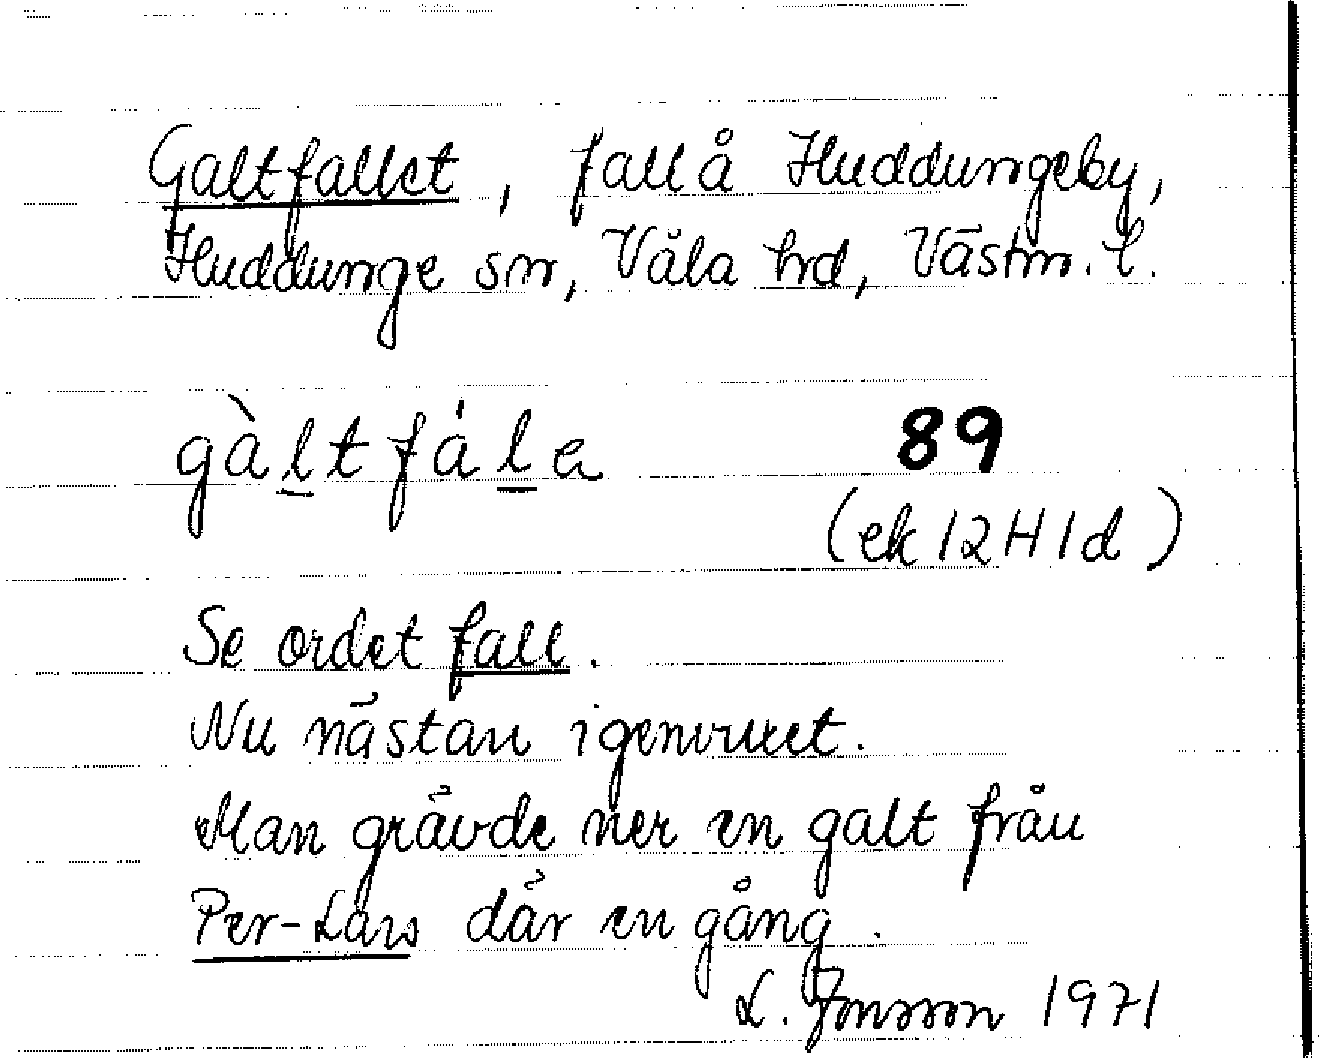 Galtfallet, fall å Huddungeby,
Huddunge sn, Våla hd, Västm. l.
gàltfála 89
(ek 12H1d)
Se ordet fall.
Nu nästan igenvuxet.
Man grävde ner en galt från
Per-Lars där en gång.
L. Jonsson 1971